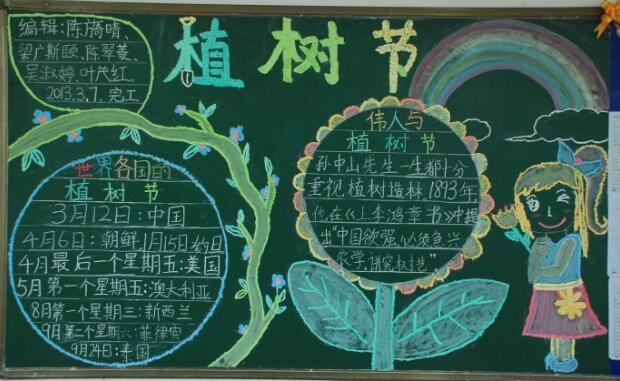 编辑:陈旖晴、
梁广斯颐、陈翠菱、
吴淑婷、叶芷红.
2013.3.7.完工
植树节
世界各国的
植树节
3月12日:中国
4月6日:朝鲜,1月15日:约旦
4月最后一个星期五:美国
5月第一个星期五:澳大利亚
8月第一个星期三:新西兰
9月第二个星期六:菲律宾
9月24日:泰国
伟人与
植树节
孙中山先生一生都十分
重视植树造林,1893年,
他在《上李鸿章书》中提
出"中国欲强,必须急兴
农学,讲究